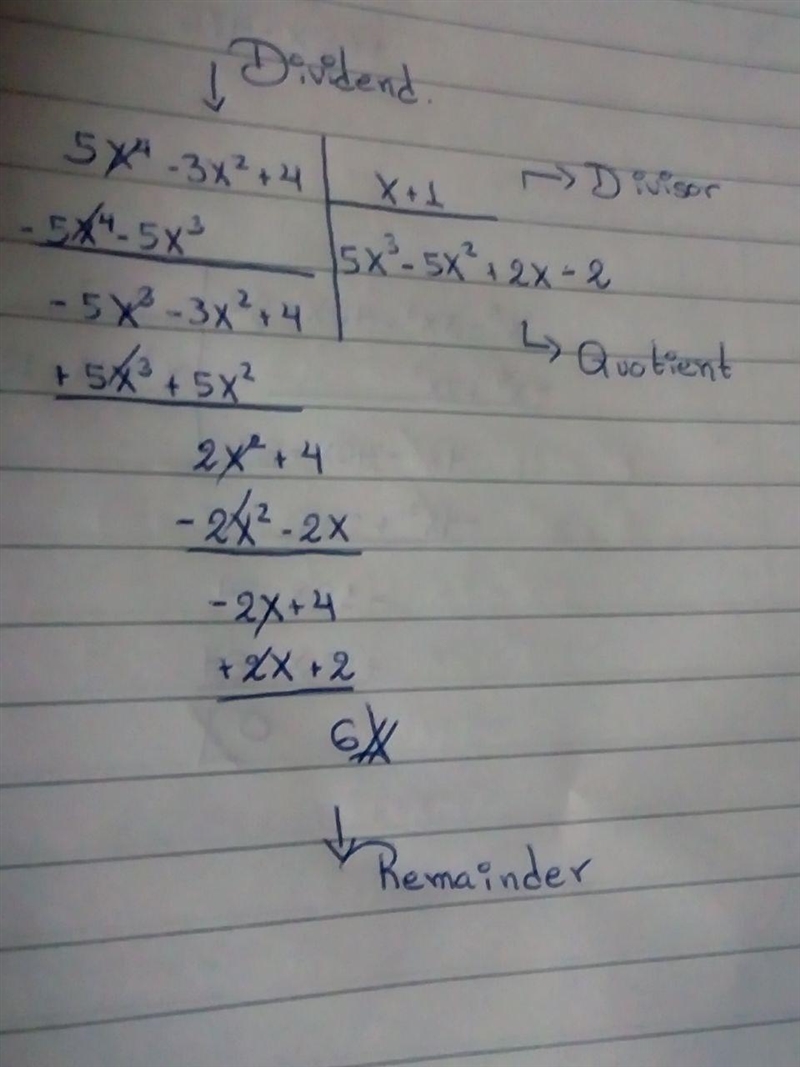 ↓ Dividend.
5x⁴ - 3x² + 4 | x + 1 → Divisor
- 5x⁴ - 5x³ | 5x³ - 5x² + 2x - 2
- 5x³ - 3x² + 4 ↳ Quotient
+ 5x³ + 5x²
2x² + 4
- 2x² - 2x
- 2x + 4
+ 2x + 2
6
↓ Remainder